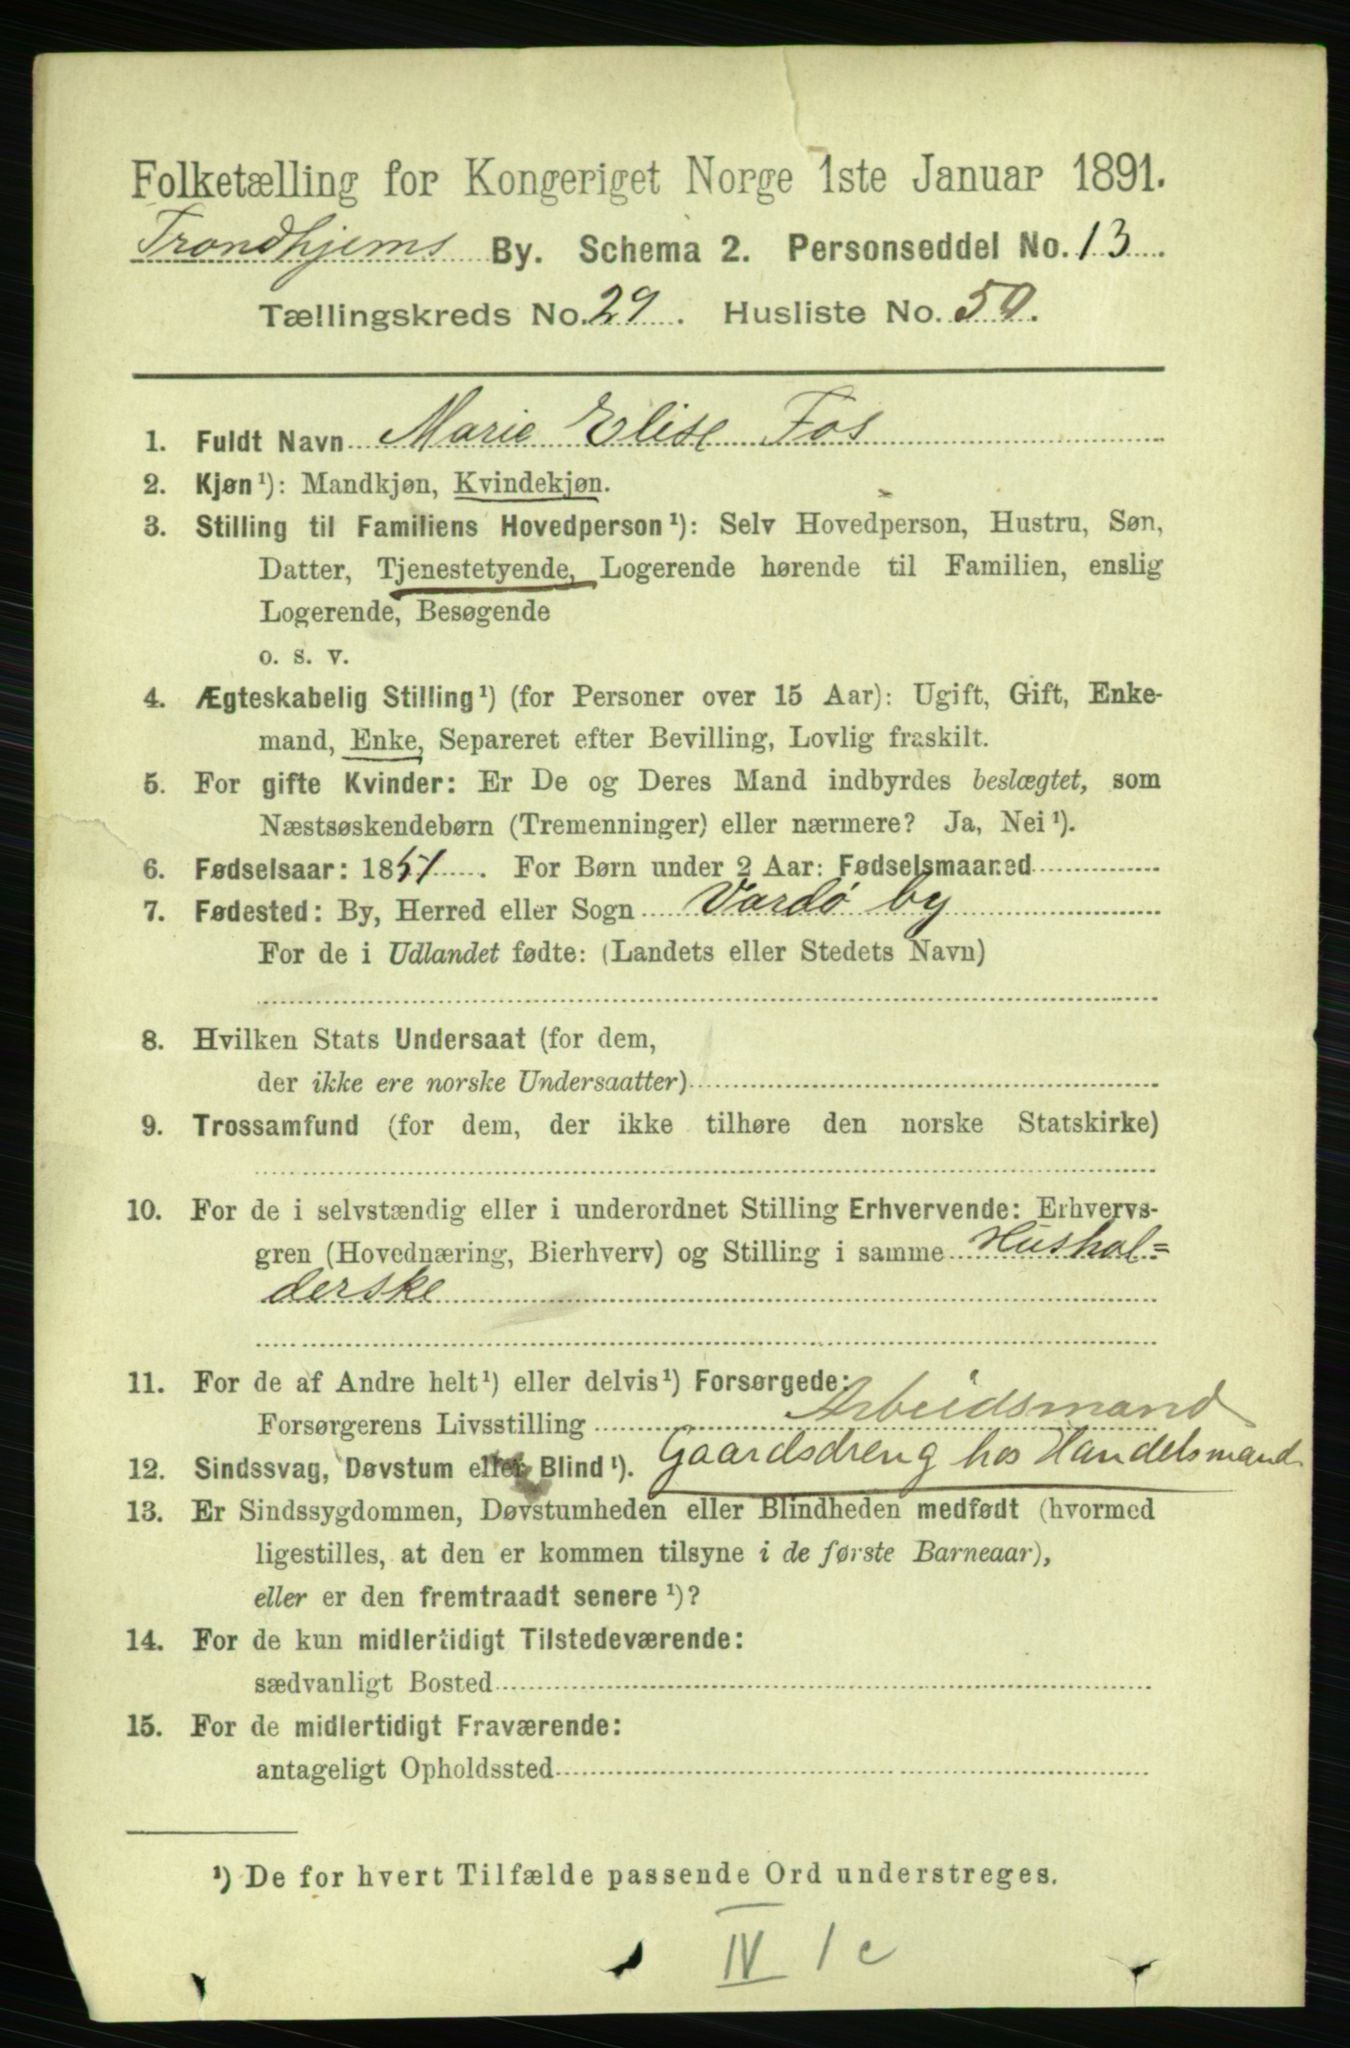 Folketælling for Kongeriget Norge 1ste Januar 1891.
Trondhjems By. Schema 2. Personseddel No. 13.
Tællingskreds No. 29. Husliste No. 50.
1. Fuldt Navn Marie Elise Fos
2. Kjøn¹): Mandkjøn, Kvindekjøn.
3. Stilling til Familiens Hovedperson¹): Selv Hovedperson, Hustru, Søn,
Datter, Tjenestetyende, Logerende hørende til Familien, enslig
Logerende, Besøgende
o. s. v.
4. Ægteskabelig Stilling¹) (for Personer over 15 Aar): Ugift, Gift, Enke-
mand, Enke, Separeret efter Bevilling, Lovlig fraskilt.
5. For gifte Kvinder: Er De og Deres Mand indbyrdes beslægtet, som
Næstsøskendebørn (Tremenninger) eller nærmere? Ja, Nei¹).
6. Fødselsaar: 1851. For Børn under 2 Aar: Fødselsmaaned
7. Fødested: By, Herred eller Sogn Vardø by
For de i Udlandet fødte: (Landets eller Stedets Navn)
8. Hvilken Stats Undersaat (for dem,
der ikke ere norske Undersaatter)
9. Trossamfund (for dem, der ikke tilhøre den norske Statskirke)
10. For de i selvstændig eller i underordnet Stilling Erhvervende: Erhvervs-
gren (Hovednæring, Bierhverv) og Stilling i samme Hushol=
derske
11. For de af Andre helt¹) eller delvis¹) Forsørgede:
Forsørgerens Livsstilling Arbeidsmand
Gaardsdreng hos Handelsmand
12. Sindssvag, Døvstum eller Blind¹).
13. Er Sindssygdommen, Døvstumheden eller Blindheden medfødt (hvormed
ligestilles, at den er kommen tilsyne i de første Barneaar),
eller er den fremtraadt senere¹)?
14. For de kun midlertidigt Tilstedeværende:
sædvanligt Bosted
15. For de midlertidigt Fraværende:
antageligt Opholdssted
¹) De for hvert Tilfælde passende Ord understreges.
IV 1c